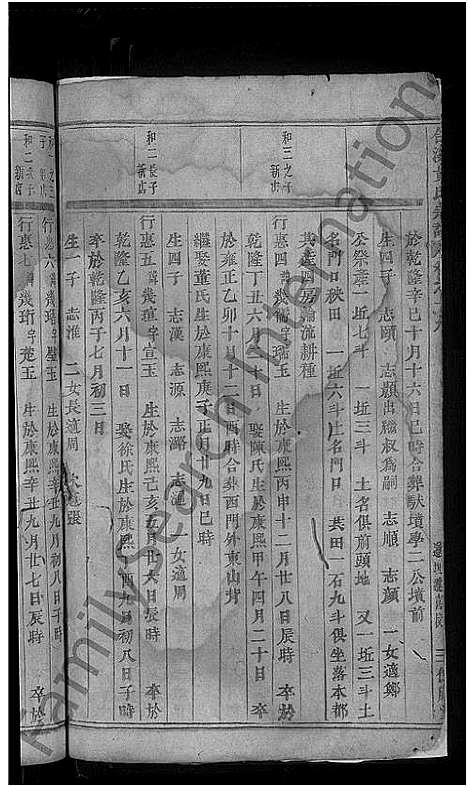 於乾隆辛巳十月十六日巳時合葬猷墳學二公墳前
生四子 志頤 志顯出繼叔為嗣 志順 志顏 一女適鄉
公祭產一坵七斗 一坵三斗 土名俱前頭地 又一坵三斗土
名門日秧田 一坵六斗土名門日 共田一石九斗俱坐落本都
其遠四房論流耕種
和三之子
新市
行惠四 諱幾 字瑞玉 生於康熙丙申十二月廿八日辰時 卒於
乾隆丁丑六月二十日 娶陳氏生於康熙甲午四月二十日 卒
於雍正乙卯十月十二日酉時合葬西門外東山背
繼娶董氏生於康熙庚子正月廿九日巳時
生四子 志漢 志源 志潞 志 一女適周
和二長子
新店
行惠五 諱幾瑄 字宣玉 生於康熙己亥五月廿六日辰時 卒於
乾隆乙亥六月十一日 娶徐氏生於康熙丁酉九月初八日子時
卒於乾隆丙子七月初三日
生一子 志淮 二女長適周 次適張
行惠六 諱幾珩 字璧玉 生於康熙辛丑九月初八日子時
和二次子
新店
行惠七 諱幾珩 字楚玉 生於康熙辛丑九月廿七日辰時 卒於
familysearch international